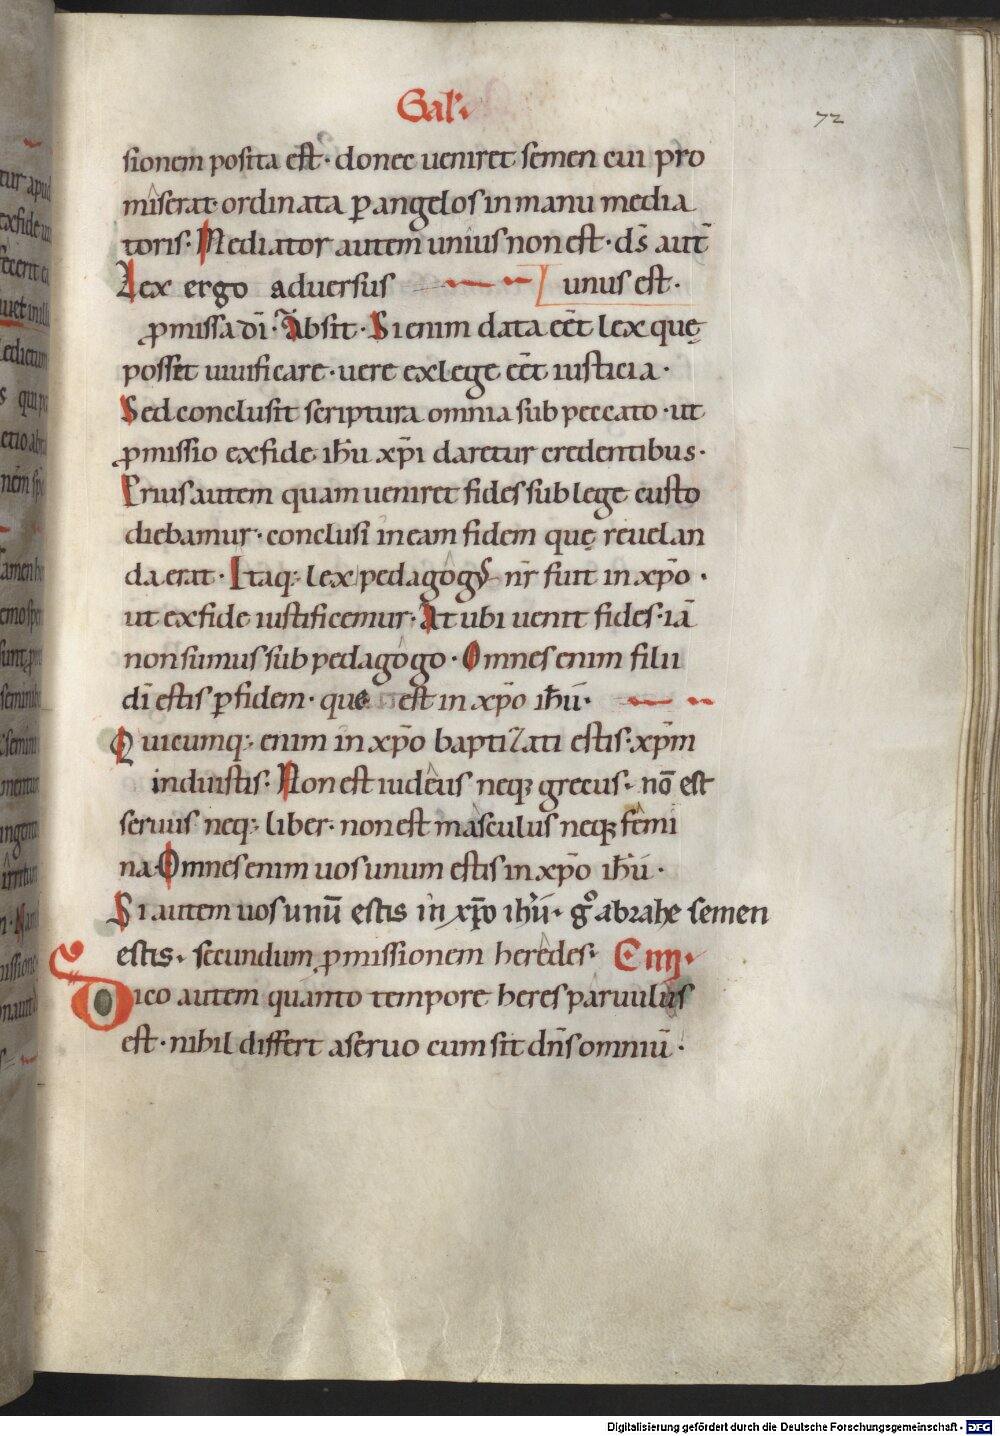 Gal·
72
sionem posita est· donec ueniret semen cui pro
miserat· ordinata ꝑ angelos in manu media
toris· Mediator autem unius non est· ds̄ aut̄
Lex ergo aduersus unus est·
ꝓmissa dī· Absit· Si enim data eēt lex quę
posset uiuificare· uere ex lege eēt iusticia·
Sed conclusit scriptura omnia sub peccato· ut
ꝓmissio ex fide ihū xp̄i daretur credentibus·
Prius autem quam ueniret fides sub lege custo
diebamur· conclusi in eam fidem quę reuelan
da erat· Itaq; lex pedagogꝰ nr̄ fuit in xp̄o·
ut ex fide iustificemur· At ubi uenit fides· iā
non sumus sub pedagogo· Omnes enim filii
dī estis ꝑ fidem· que est in xp̄o ihū·
Quicumq; enim in xp̄o baptizati estis· xp̄m
induistis· Non est iudeus neq; grecus· nō est
seruus neq; liber· non est masculus neq; femi
na· Omnes enim uos unum estis in xp̄o ihū·
Si autem uos unū estis in xp̄o ihū· gͦ abrahe semen
estis· secundum ꝓmissionem heredes· C IIII·
Dico autem quanto tempore heres paruulus
est· nihil differt a seruo cum sit dn̄s omniū·
Digitalisierung gefördert durch die Deutsche Forschungsgemeinschaft - DFG